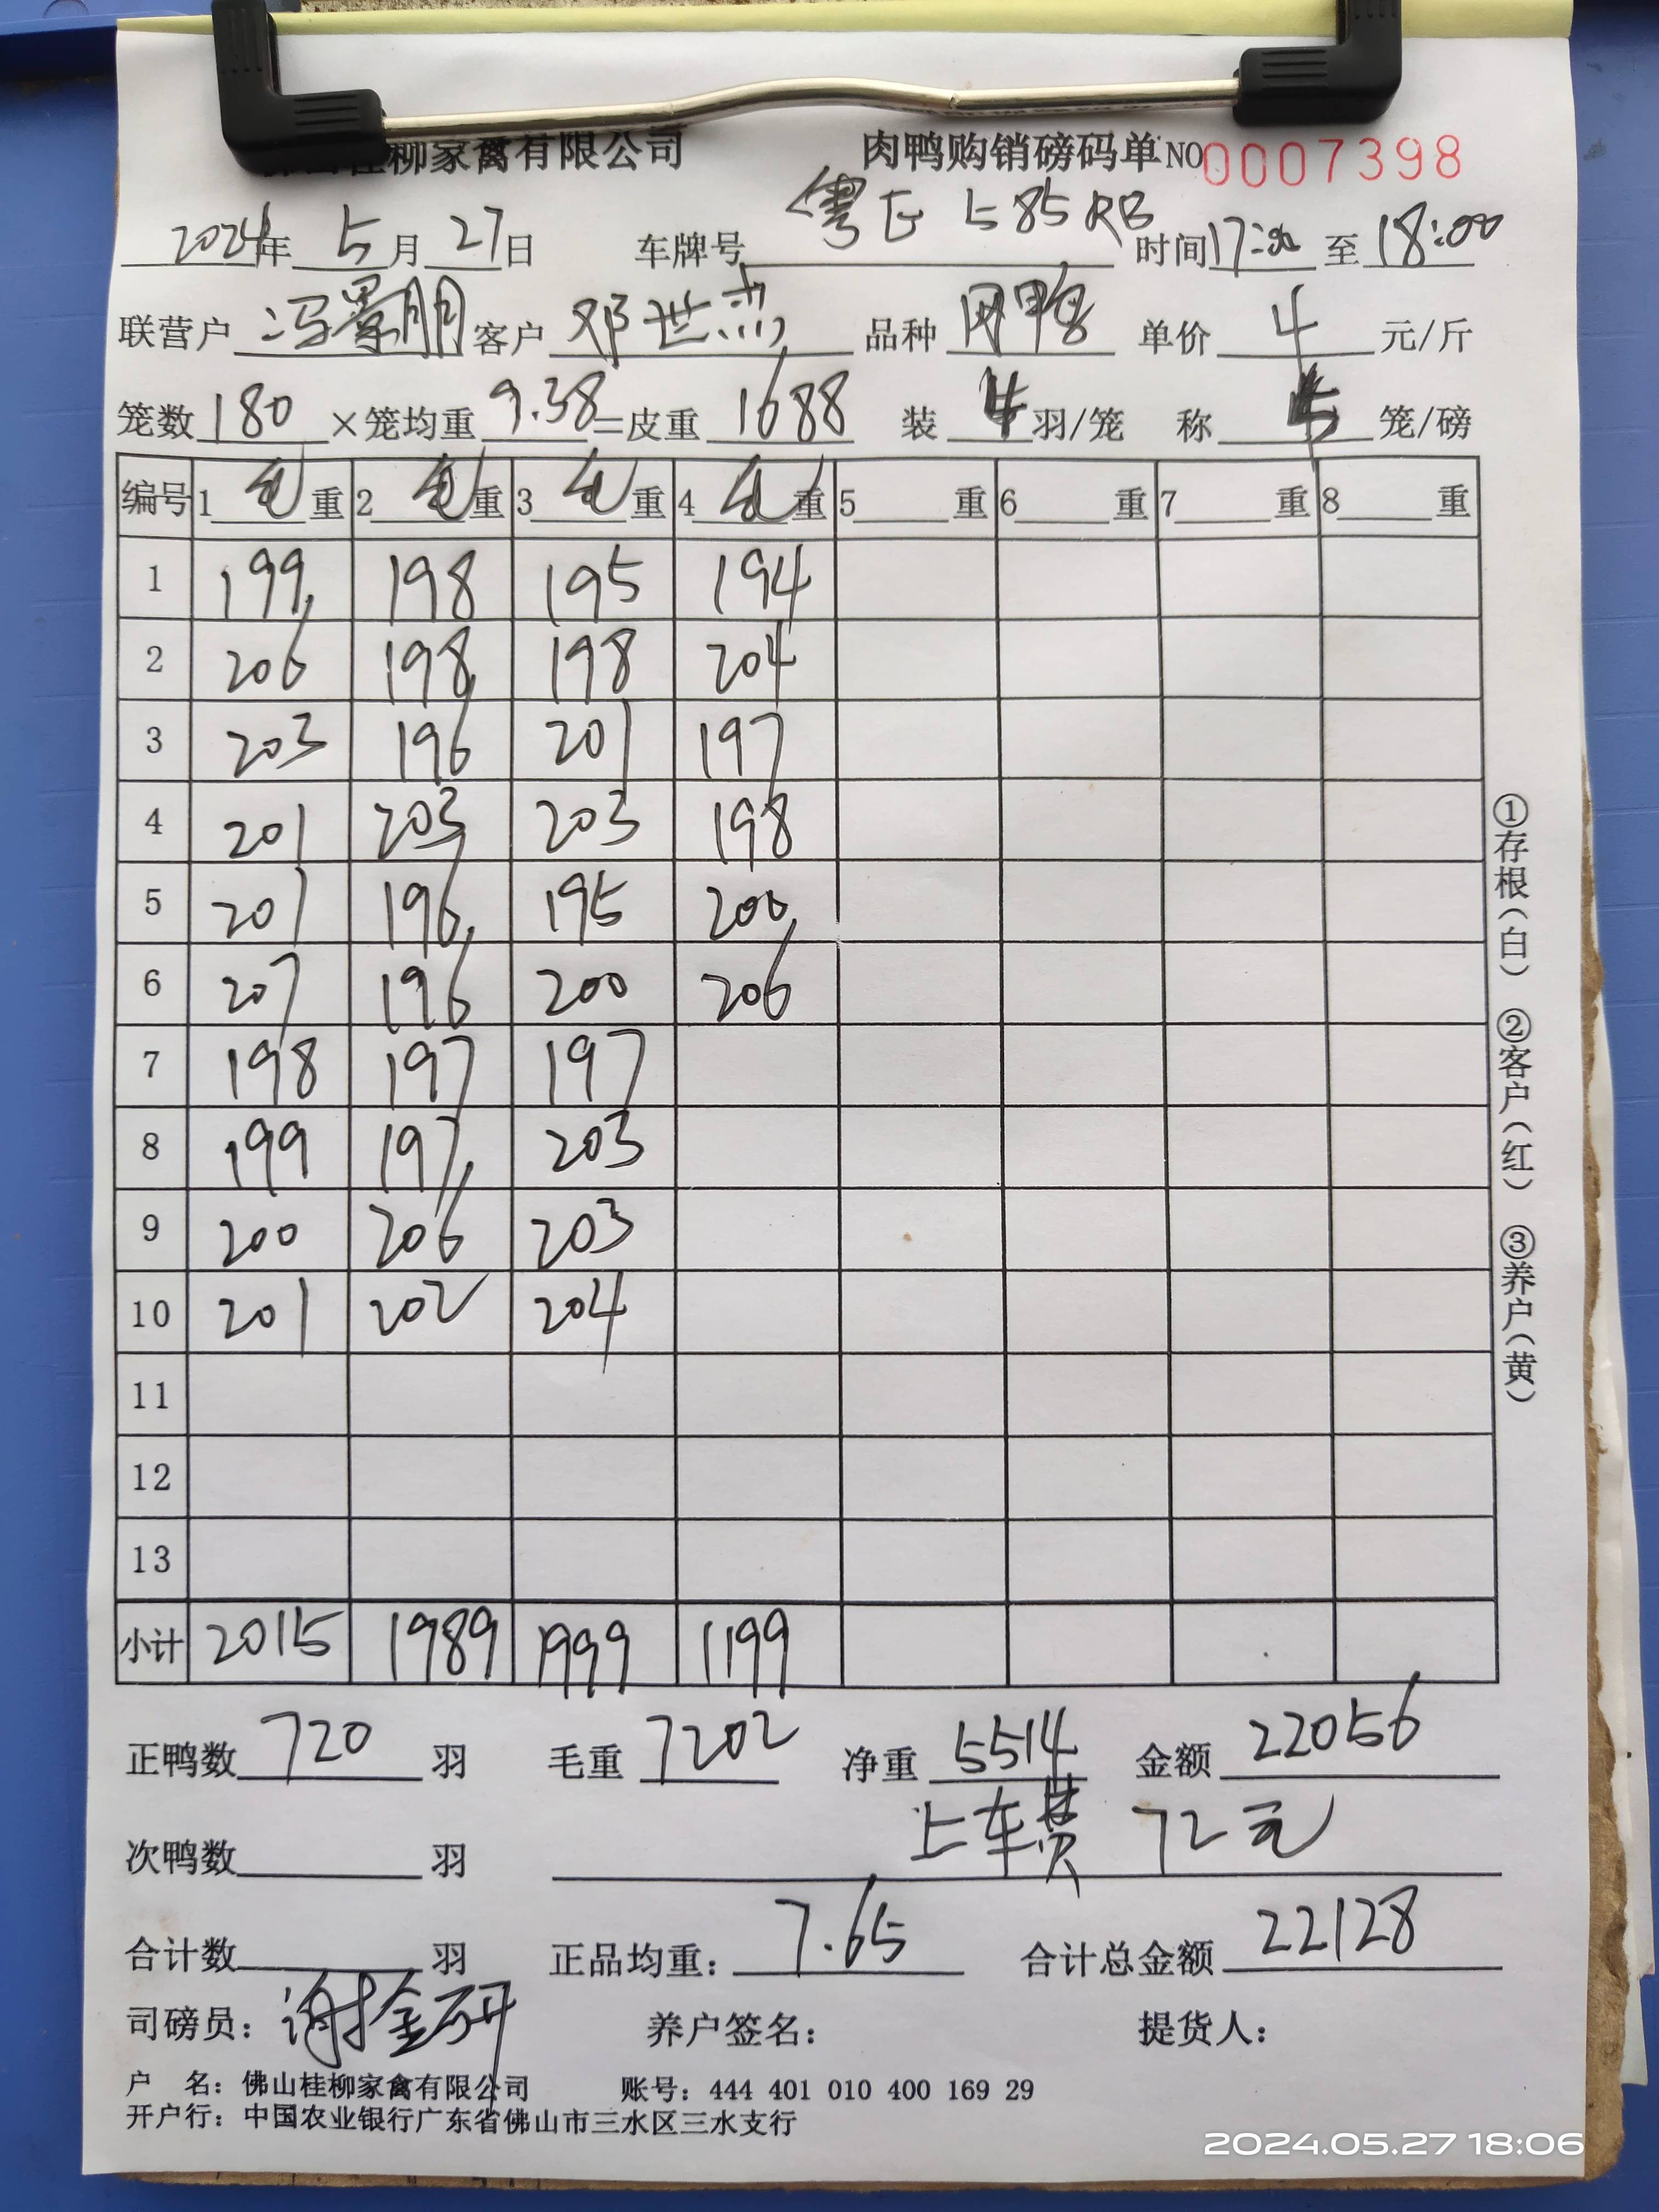 佛山桂柳家禽有限公司 肉鸭购销磅码单 NO 0007398
2024年 5月 27日 车牌号 粤E 585RB 时间 17:00 至 18:00
联营户 冯景朋 客户 邓世杰 品种 网鸭 单价 4 元/斤
笼数 180 ×笼均重 9.38 =皮重 1688 装 4 羽/笼 称 5 笼/磅
编号 1 毛重 2 毛重 3 毛重 4 毛重 5 重 6 重 7 重 8 重
1 199 198 195 194
2 206 198 198 204
3 203 196 201 197
4 201 203 203 198
5 201 196 195 200
6 207 196 200 206
7 198 197 197
8 199 197 203
9 200 206 203
10 201 202 204
11
12
13
小计 2015 1989 1999 1199
正鸭数 720 羽 毛重 7202 净重 5514 金额 22056
次鸭数 羽 上车费 72元
合计数 羽 正品均重: 7.65 合计总金额 22128
司磅员: 谢金研 养户签名: 提货人:
户 名: 佛山桂柳家禽有限公司 账号: 444 401 010 400 169 29
开户行: 中国农业银行广东省佛山市三水区三水支行
①存根(白) ②客户(红) ③养户(黄)
2024.05.27 18:06